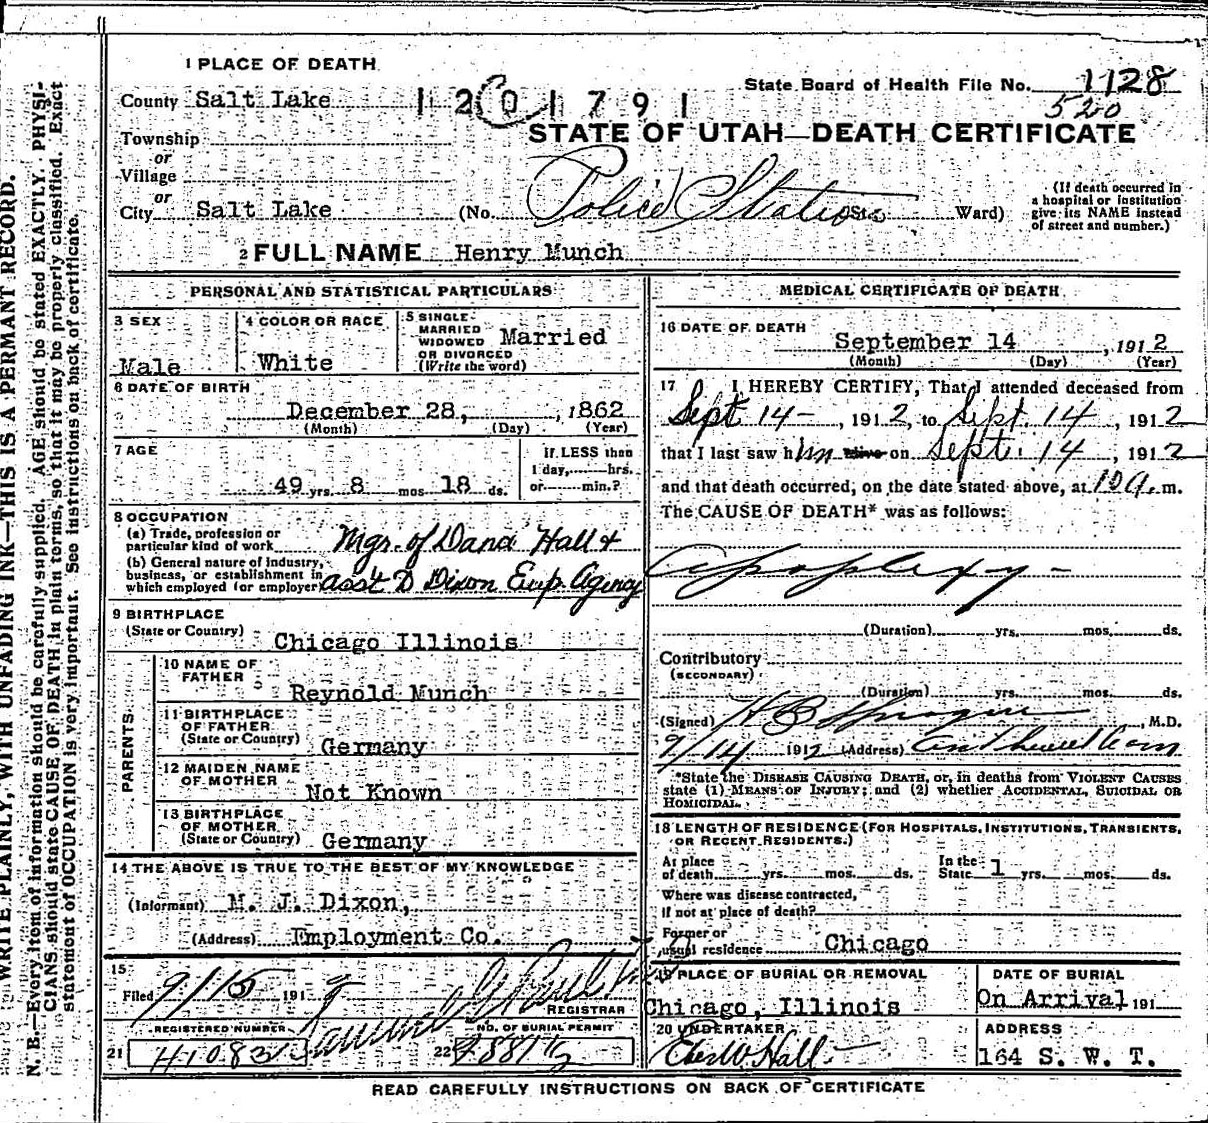 1 PLACE OF DEATH
State Board of Health File No. 1128
County Salt Lake 1201791 520
STATE OF UTAH—DEATH CERTIFICATE
Township
or
Village
or
City Salt Lake (No. Police Station St. Ward)
(If death occurred in
a hospital or institution
give its NAME instead
of street and number.)
2 FULL NAME Henry Munch
PERSONAL AND STATISTICAL PARTICULARS
3 SEX
Male
4 COLOR OR RACE
White
5 SINGLE
MARRIED
WIDOWED
OR DIVORCED
(Write the word)
Married
6 DATE OF BIRTH
December 28, , 1862
(Month) (Day) (Year)
7 AGE
49 yrs. 8 mos 18 ds.
if LESS than
1 day, hrs.
or min.?
8 OCCUPATION
(a) Trade, profession or
particular kind of work Mgr. of Hall &
(b) General nature of industry,
business, or establishment in
which employed (or employer) asst D Dixon Emp. Agency
9 BIRTHPLACE
(State or Country) Chicago Illinois
PARENTS
10 NAME OF
FATHER
Reynold Munch
11 BIRTHPLACE
OF FATHER
(State or Country) Germany
12 MAIDEN NAME
OF MOTHER
Not Known
13 BIRTHPLACE
OF MOTHER
(State or Country) Germany
14 THE ABOVE IS TRUE TO THE BEST OF MY KNOWLEDGE
(Informant) M. J. Dixon,
(Address) Employment Co.
15
Filed 9/15 191
REGISTRAR
REGISTERED NUMBER
21
NO. OF BURIAL PERMIT
22
MEDICAL CERTIFICATE OF DEATH
16 DATE OF DEATH
September 14 , 1912
(Month) (Day) (Year)
17 I HEREBY CERTIFY, That I attended deceased from
Sept 14 - , 1912, to Sept. 14 , 1912
that I last saw him alive on Sept. 14 , 1912
and that death occurred, on the date stated above, at 10 a. m.
The CAUSE OF DEATH* was as follows:
Apoplexy -
(Duration) yrs. mos. ds.
Contributory
(SECONDARY)
(Duration) yrs. mos. ds.
(Signed) H B Sprague , M.D.
9/14 1912 (Address)
*State the DISEASE CAUSING DEATH, or, in deaths from VIOLENT CAUSES
state (1) MEANS OF INJURY; and (2) whether ACCIDENTAL, SUICIDAL OR
HOMICIDAL.
18 LENGTH OF RESIDENCE (FOR HOSPITALS, INSTITUTIONS, TRANSIENTS,
OR RECENT RESIDENTS.)
At place
of death yrs. mos. ds.
In the
State 1 yrs. mos. ds.
Where was disease contracted,
if not at place of death?
Former or
usual residence Chicago
19 PLACE OF BURIAL OR REMOVAL
Chicago, Illinois
DATE OF BURIAL
On Arrival 191
20 UNDERTAKER
Eber W Hall
ADDRESS
164 S. W. T.
READ CAREFULLY INSTRUCTIONS ON BACK OF CERTIFICATE
WRITE PLAINLY, WITH UNFADING INK—THIS IS A PERMANT RECORD.
N. B.—Every item of information should be carefully supplied. AGE should be stated EXACTLY. PHYSI-
CIANS should state CAUSE OF DEATH in plain terms, so that it may be properly classified. Exact
statement of OCCUPATION is very important. See instructions on back of certificate.